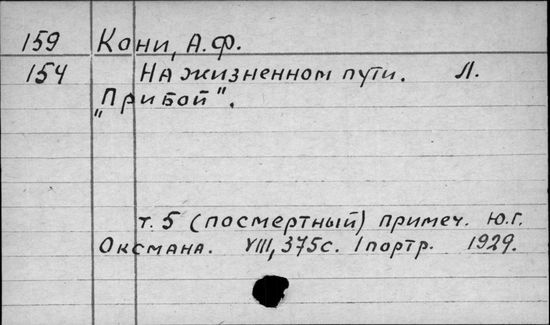 159 Кони, А.Ф.
154 На жизненном пути. Л.
"Прибой".
т. 5 (посмертный) примеч. Ю.Г.
Оксмана. VIII, 375с. 1 портр. 1929.